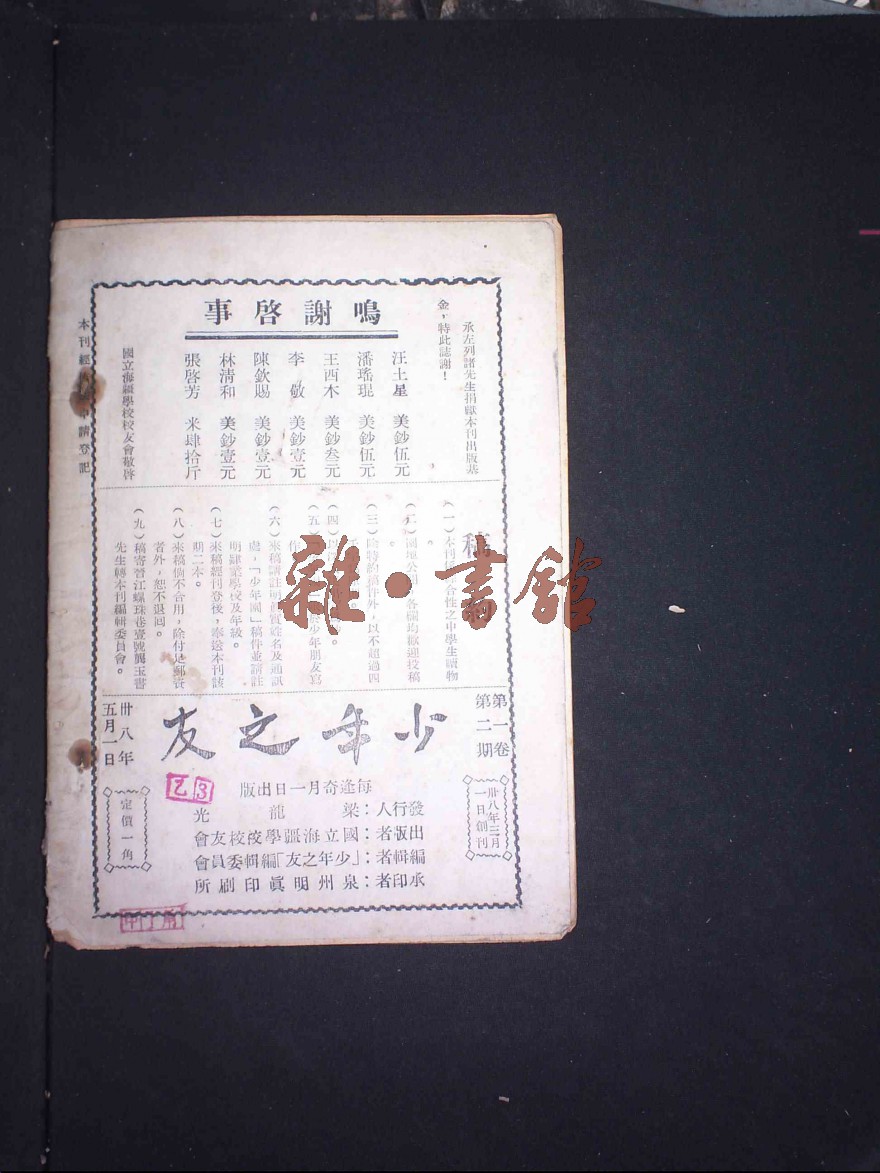 鳴謝啓事
承左列諸先生捐獻本刊出版基
金,特此誌謝!
汪土星 美鈔伍元
潘瑤琨 美鈔伍元
王酉木 美鈔叁元
李敏 美鈔壹元
陳欽賜 美鈔壹元
林清和 美鈔壹元
張啓芳 米肆拾斤
國立海疆學校校友會敬啓
本刊經 申請登記
稿
(一)本刊 合性之中學生讀物
。
(二) 公開,各欄均歡迎投稿
。
(三)除特約稿件外,以不超過四
(四)以
(五) 少年朋友寫
作
(六)來稿請註明眞實姓名及通訊
處,「少年園」稿件並請註
明肄業學校及年級。
(七)來稿經刊登後,奉送本刊該
期二本。
(八)來稿倘不合用,除付足郵資
者外,恕不退囘。
(九)稿寄晉江螺珠巷壹號龔玉書
先生轉本刊編輯委員會。
雜·書館
第一卷
第二期
少年之友
卅八年
五月一日
卅八年三月
一日創刊
每逢奇月一日出版
發行人:梁龍光
出版者:國立海疆學校校友會
編輯者:「少年之友」編輯委員會
承印者:泉州明眞印刷所
定價一角
乙3